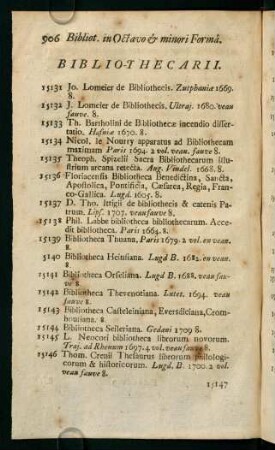 906 Bibliot. in Octavo & minori Formâ.
BIBLIOTHECARII.
15131 Jo. Lomeier de Bibliothecis. Zutphaniæ 1669.
8.
15132 J. Lomeier de Bibliothecis. Ultraj. 1680. veau
fauve. 8.
15133 Th. Bartholini de Bibliothecæ incendio disser-
tatio. Hafniæ 1670. 8.
15134 Nicol. le Nourry apparatus ad Bibliothecam
maximam Paris 1694. 2 vol. veau. fauve 8.
15135 Theoph. Spizelii Sacra Bibliothecarum il-
lustrium arcana retecta. Aug. Vindel. 1668. 8.
15136 Floriacensis Bibliotheca Benedictina, Sancta,
Apostolica, Pontificia, Cæsarea, Regia, Fran-
co-Gallica. Lugd. 1605. 8.
15137 D. Tho. Ittigii de bibliothecis & catenis Pa-
trum. Lips. 1707. veau fauve 8.
15138 Phil. Labbe bibliotheca bibliothecarum. Acce-
dit bibliotheca. Paris 1664. 8.
15139 Bibliotheca Thuana, Paris 1679. 2 vol. en veau.
8.
15140 Bibliotheca Heinsiana. Lugd B. 1682. en veau.
8.
15141 Bibliotheca Orsetiana. Lugd B. 1688. veau fau-
ve 8.
15142 Bibliotheca Thevenotiana. Lutet. 1694. veau
fauve 8.
15143 Bibliotheca Casteleiniana, Eversdiciana, Crom-
houtiana. 8.
15144 Bibliotheca Selleriana. Gedani 1709 8.
15145 L. Neocori bibliotheca librorum novorum.
Traj. ad Rhenum 1697. 4 vol. veau fauve 8.
15146 Thom. Crenii Thesaurus librorum philologi-
corum & historicorum. Lugd. B. 1700. 2 vol.
veau fauve 8.
15147